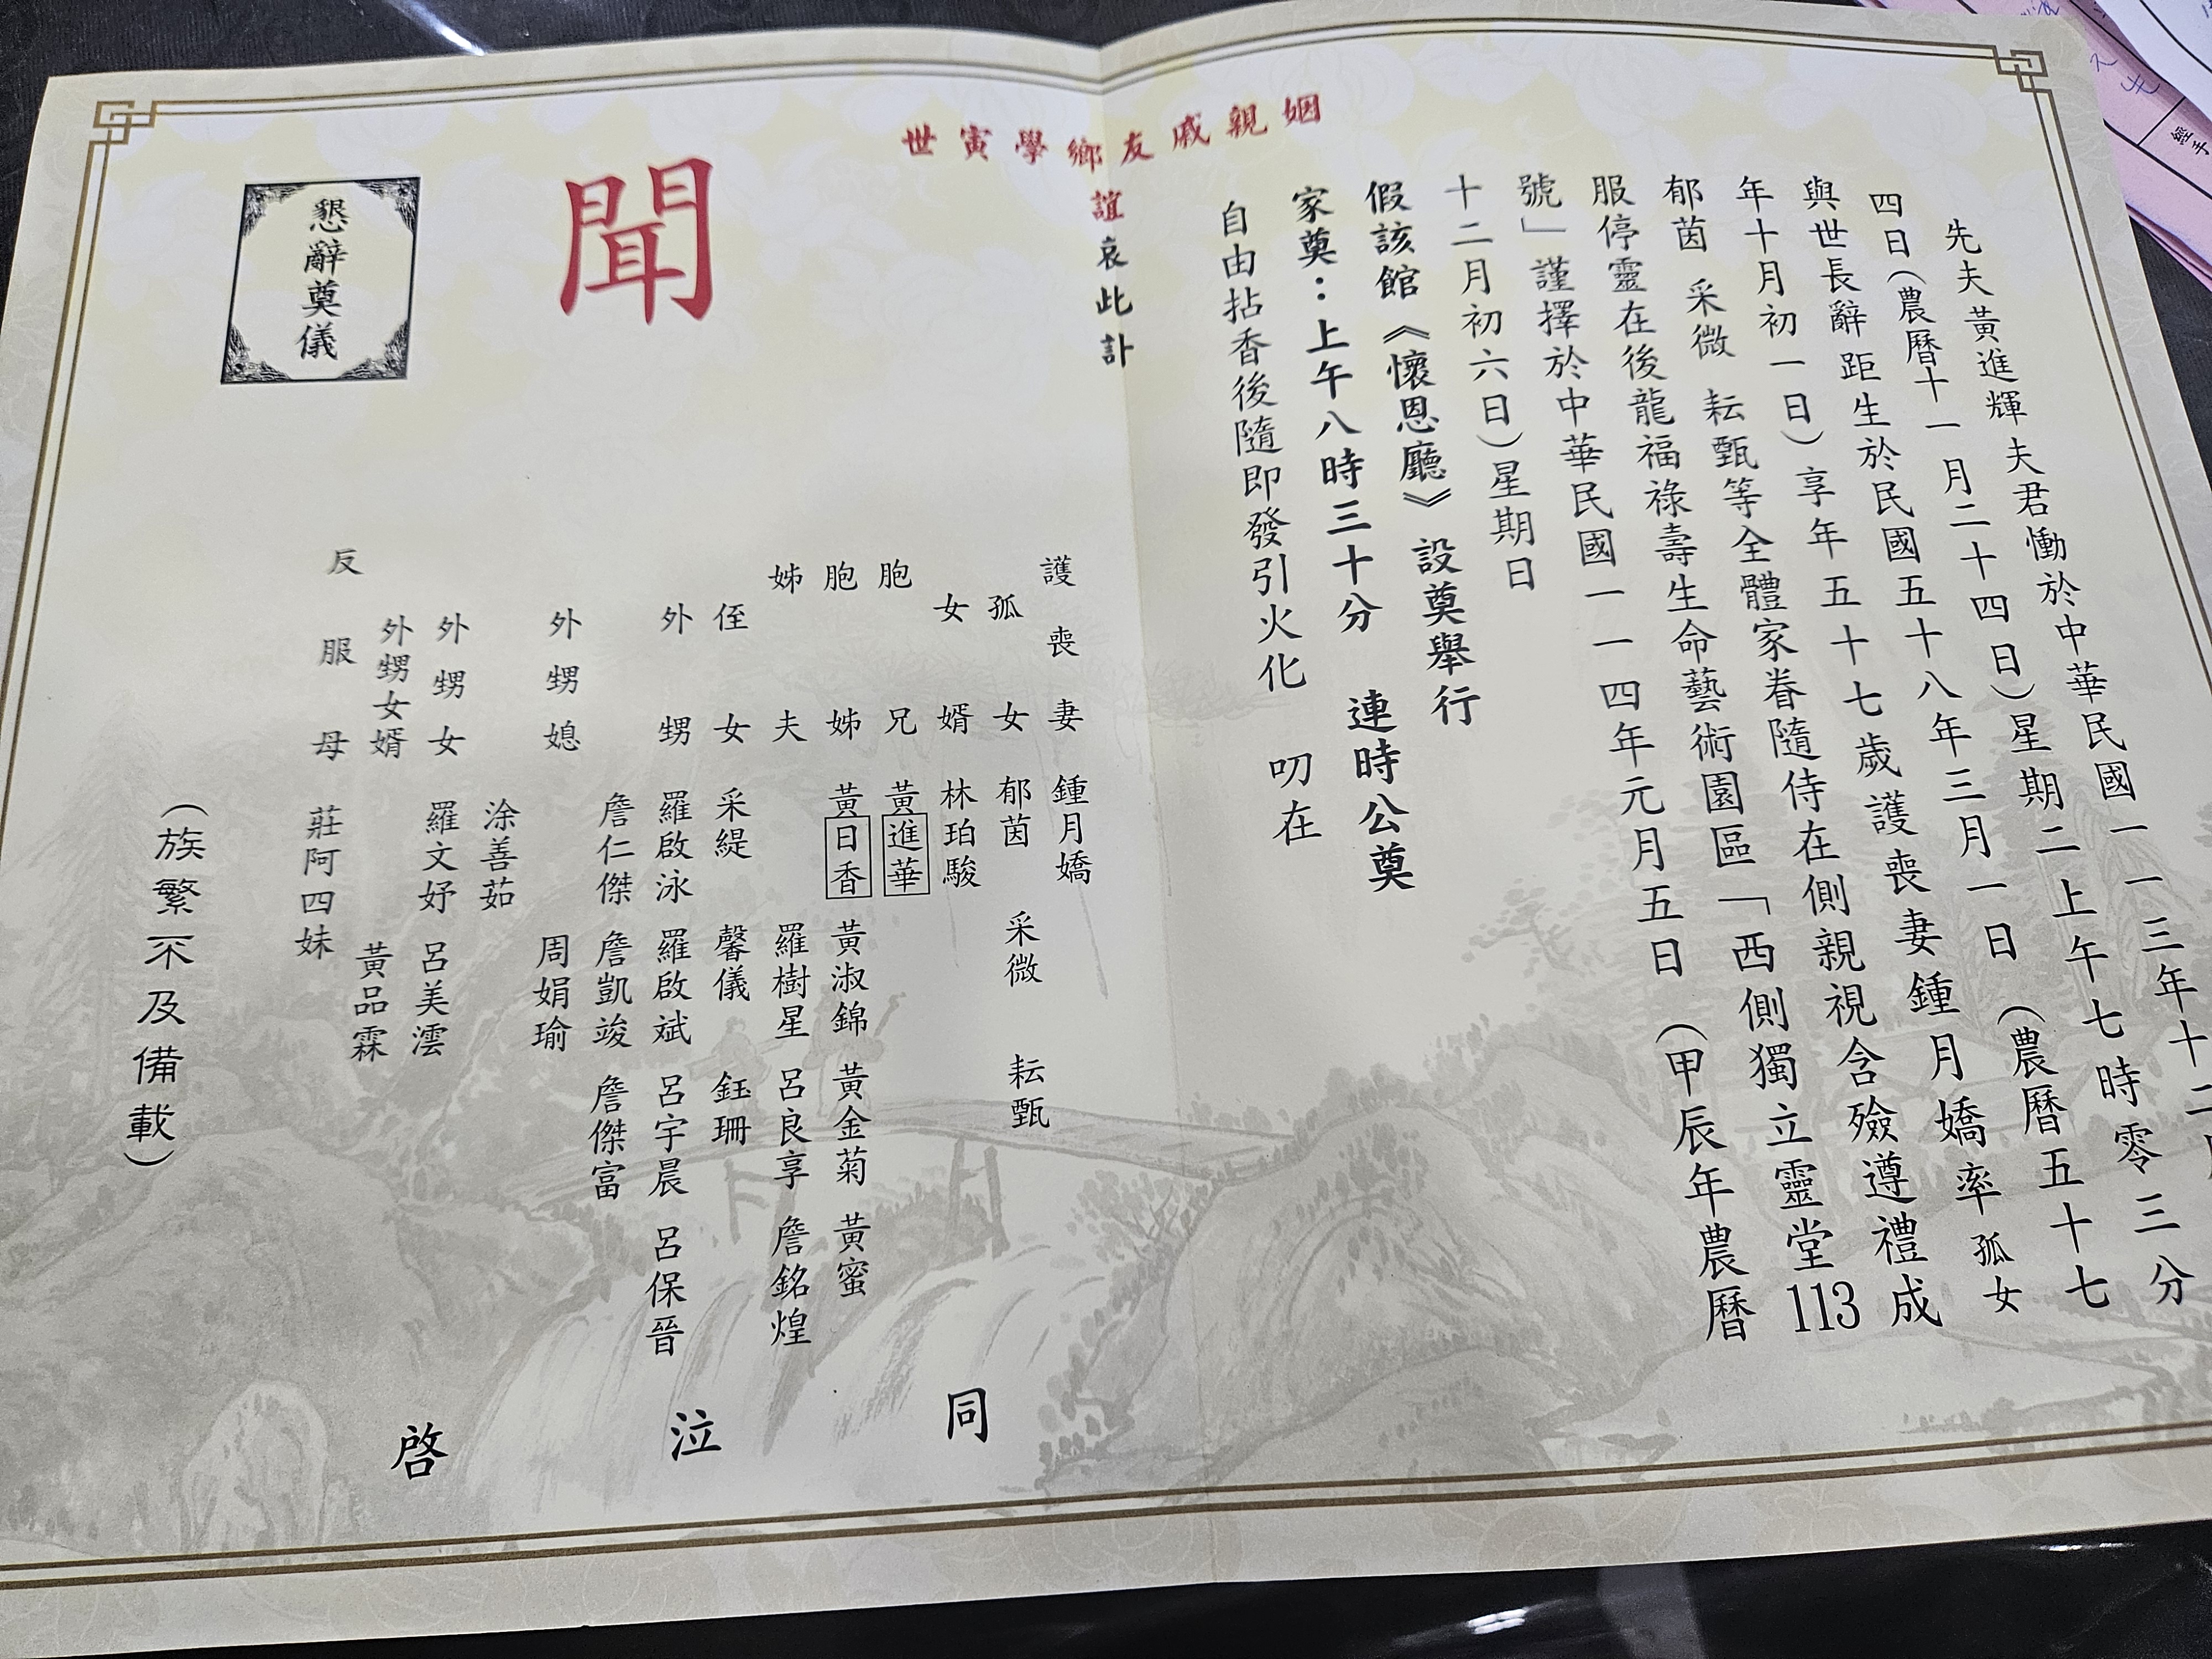 先夫黃進輝夫君慟於中華民國一一三年十二月
四日（農曆十一月二十四日）星期二上午七時零三分
與世長辭距生於民國五十八年三月一日（農曆五十七
年十月初一日）享年五十七歲護喪妻鍾月嬌率孤女
郁茵 采微 耘甄等全體家眷隨侍在側親視含殮遵禮成
服停靈在後龍福祿壽生命藝術園區「西側獨立靈堂113
號」謹擇於中華民國一一四年元月五日（甲辰年農曆
十二月初六日）星期日
假該館《懷恩廳》設奠舉行
家奠：上午八時三十分 連時公奠
自由拈香後隨即發引火化 叨在
姻親戚友鄉學寅世
誼哀此訃
聞
懇辭奠儀
護喪妻 鍾月嬌
孤女 郁茵 采微 耘甄
女婿 林珀駿
胞兄 黃進華
胞姊 黃日香 黃淑錦 黃金菊 黃蜜
姊夫 羅樹星 呂良享 詹銘煌
侄女 采緹 馨儀 鈺珊
外甥 羅啟泳 羅啟斌 呂宇晨 呂保晉
詹仁傑 詹凱竣 詹傑富
外甥媳 周娟瑜
涂善茹
外甥女 羅文妤 呂美澐
外甥女婿 黃品霖
反服母 莊阿四妹
（族繁不及備載）
同泣啓
經手